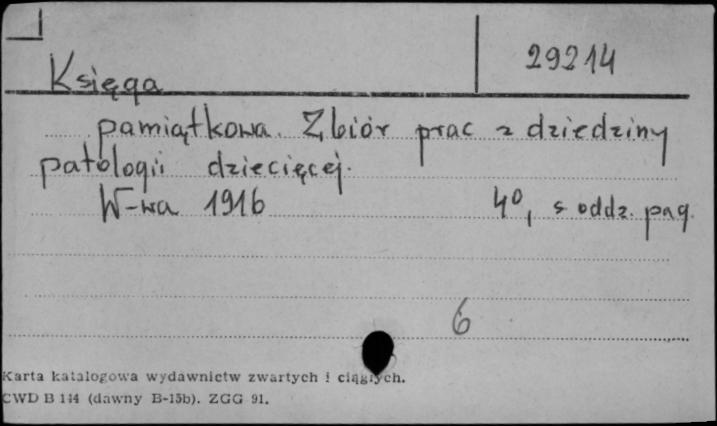 29214
Księga
pamiątkowa. Zbiór prac z dziedziny
patologii dziecięcej.
W-wa 1916 4⁰, s oddz. pag.
6
Karta katalogowa wydawnictw zwartych i ciągłych.
CWD B 144 (dawny B-15b). ZGG 91.